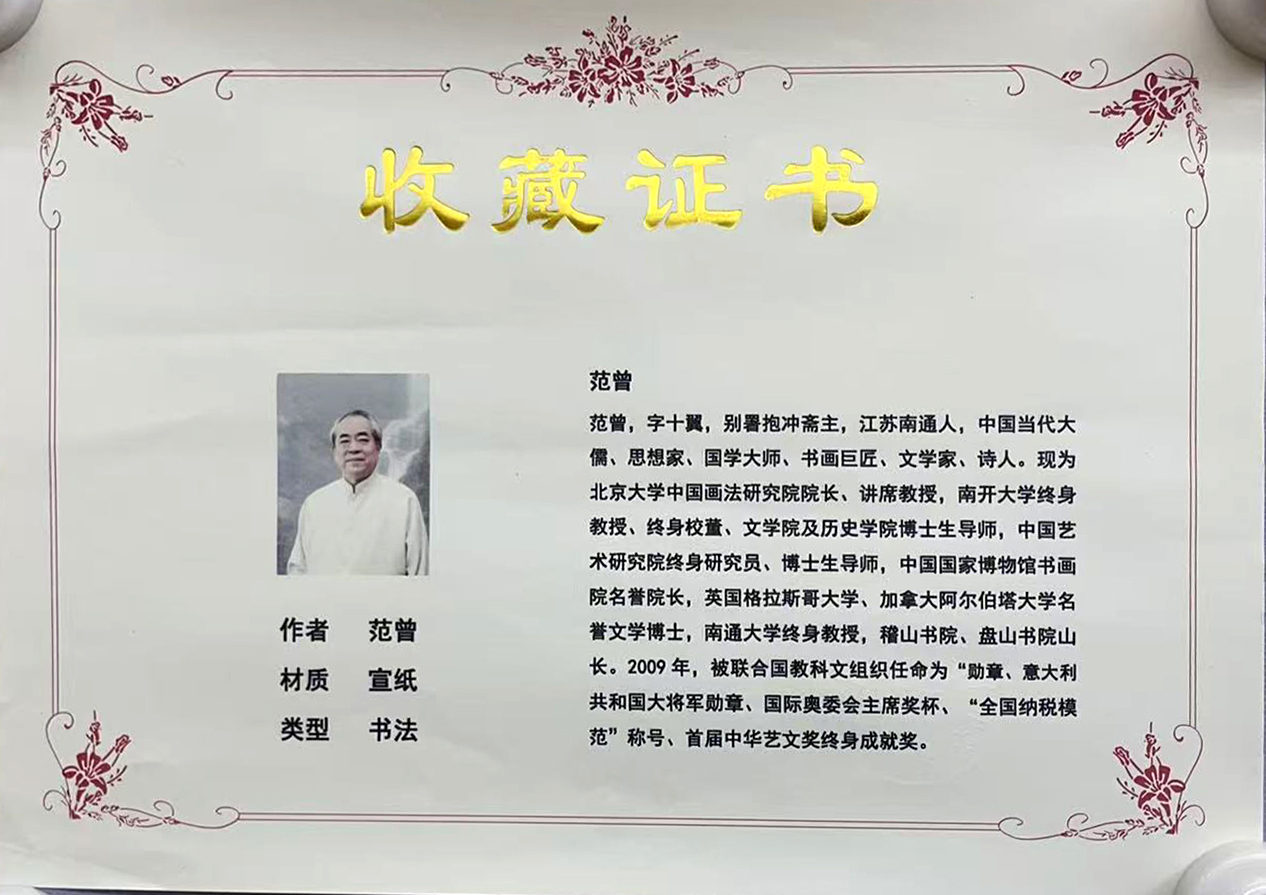 收藏证书
范曾
范曾，字十翼，别署抱冲斋主，江苏南通人，中国当代大
儒、思想家、国学大师、书画巨匠、文学家、诗人。现为
北京大学中国画法研究院院长、讲席教授，南开大学终身
教授、终身校董、文学院及历史学院博士生导师，中国艺
术研究院终身研究员、博士生导师，中国国家博物馆书画
院名誉院长，英国格拉斯哥大学、加拿大阿尔伯塔大学名
誉文学博士，南通大学终身教授，稽山书院、盘山书院山
长。2009年，被联合国教科文组织任命为“勋章、意大利
共和国大将军勋章、国际奥委会主席奖杯、“全国纳税模
范”称号、首届中华艺文奖终身成就奖。
作者 范曾
材质 宣纸
类型 书法